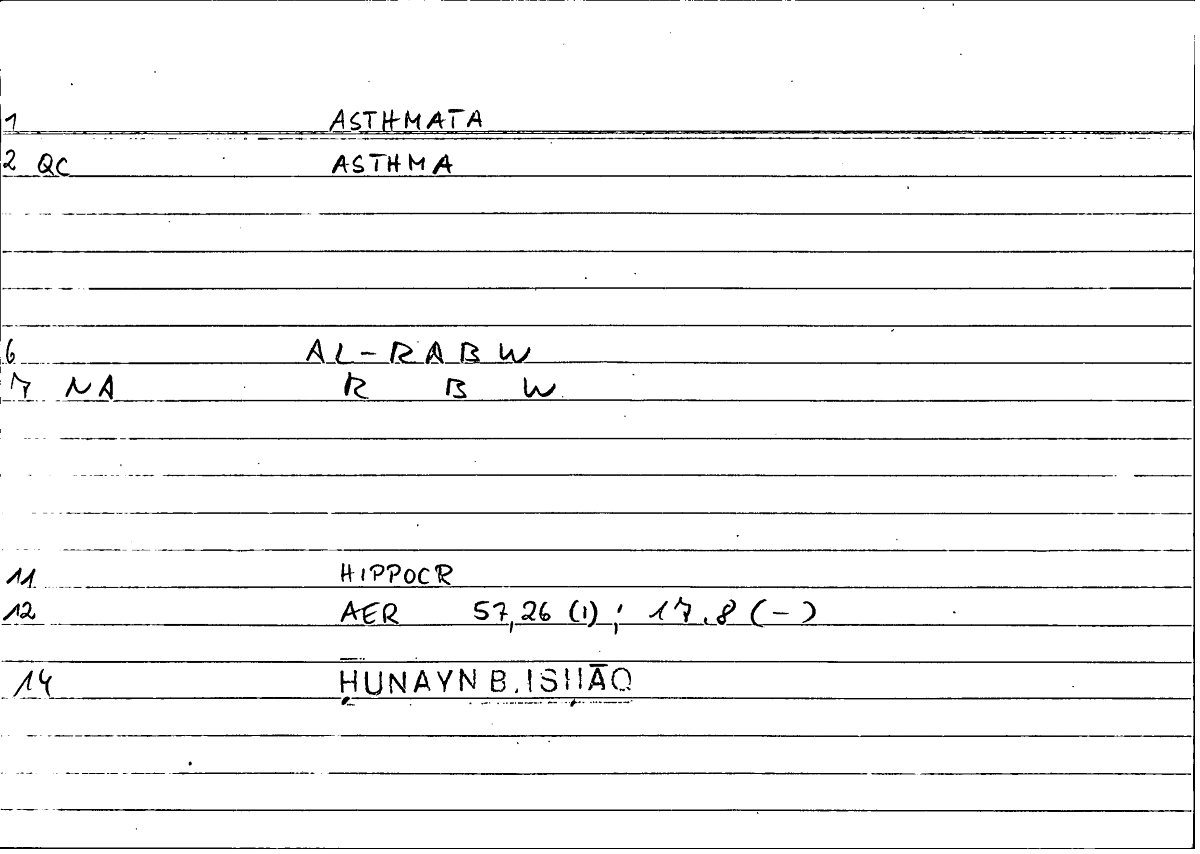 1 ASTHMATA
2 QC ASTHMA
6 AL-RABW
7 NA R B W
11 HIPPOCR
12 AER 57,26 (1) ; 17.8 (-)
14 ḤUNAYN B. ISḤĀQ